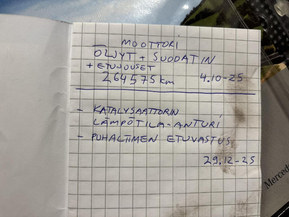 MOOTTORI
ÖLJYT + SUODATIN
+ ETUJOUSET
264575 km 4.10-25
- KATALYSAATTORIN
LÄMPÖTILA-ANTURI
- PUHALTIMEN ETUVASTUS
29.12-25
Merced